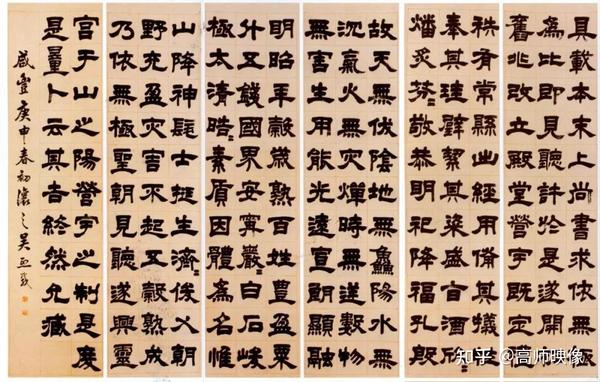 具載本末上尚書求依無
為比即見聽許於是遂開
舊兆改立殿堂營宇既定
秩有常縣出經用備其犧
奉其珪璧絜其粢盛旨酒欣
燔炙芬〻敬恭明祀降福孔殷
故天無伏陰地無鱻陽水無
沉氣火無灾燀時無逆數物
無害生用能光遠宣朗顯融
明昭年穀歲熟百姓豐盈粟
升五錢國界安寧巖〻白石峻
極太清晧〻素質因體為名惟
山降神髦士挺生濟〻俊乂朝
野充盈灾害不起五穀熟成
乃依無極聖朝見聽遂興靈
宮于山之陽營宇之制是度
是量卜云其吉終然允臧
咸豐庚申春初讓之吳熙載
知乎 @高师映像